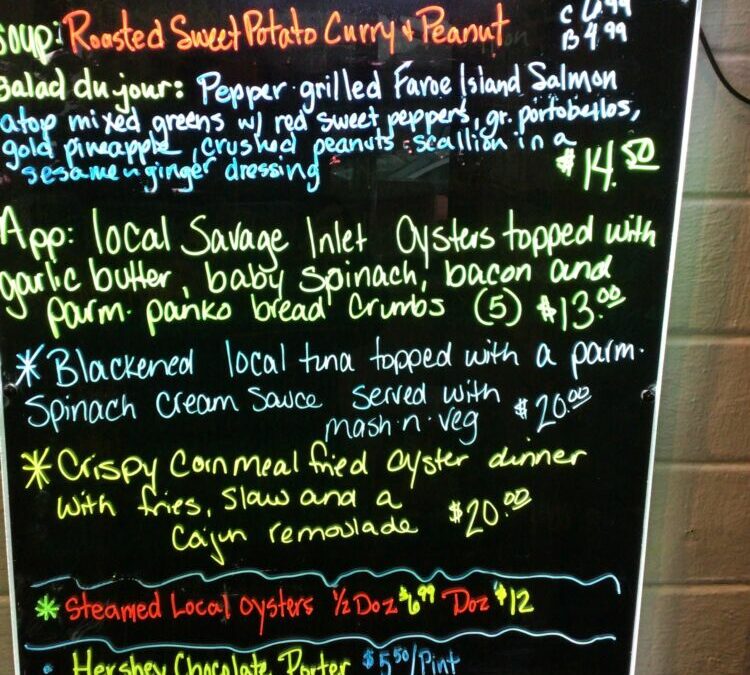 Soup: Roasted Sweet Potato Curry & Peanut
C 6.99
B 4.99
Salad du jour: Pepper grilled Faroe Island Salmon
atop mixed greens w/ red sweet peppers, gr. portobellos,
gold pineapple, crushed peanuts, scallion in a
sesame n ginger dressing $14.50
App: local Savage Inlet Oysters topped with
garlic butter, baby spinach, bacon and
parm. panko bread crumbs (5) $13.00
* Blackened local tuna topped with a parm.
Spinach Cream Sauce served with
mash·n·veg $20.00
* Crispy Cornmeal fried Oyster dinner
with fries, Slaw and a
Cajun remoulade $20.00
* Steamed Local Oysters 1/2 Doz $6.99 Doz $12
• Hershey Chocolate Porter $5.50/Pint